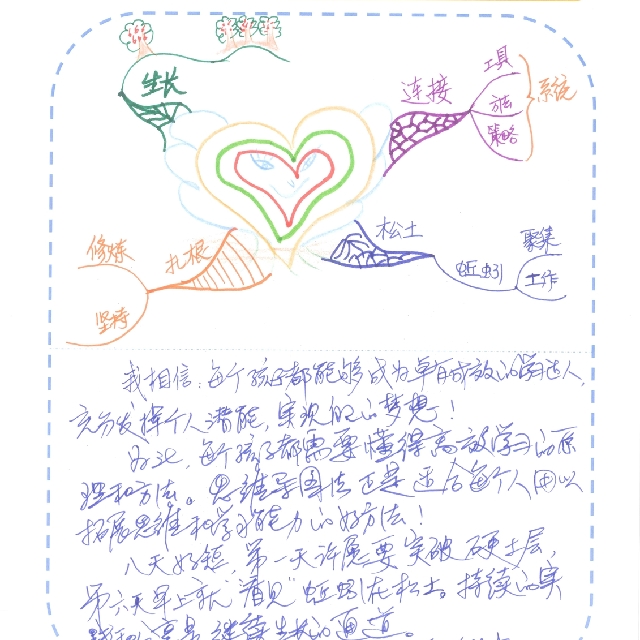 生长
连接
工具
方法
策略
系统
修炼
扎根
坚持
松土
蚯蚓
聚集
工作
我相信,每个孩子都能够成为卓有成效的学习达人,
充分发挥个人潜能,实现自己的梦想!
为此,每个孩子都需要懂得高效学习的原
理和方法。思维导图法正是适合每个人用以
拓展思维和学习能力的好方法!
八天好短,第一天许愿要突破硬土层,
第六天早上就"看见"蚯蚓在松土。持续的实
继续生长的通道。